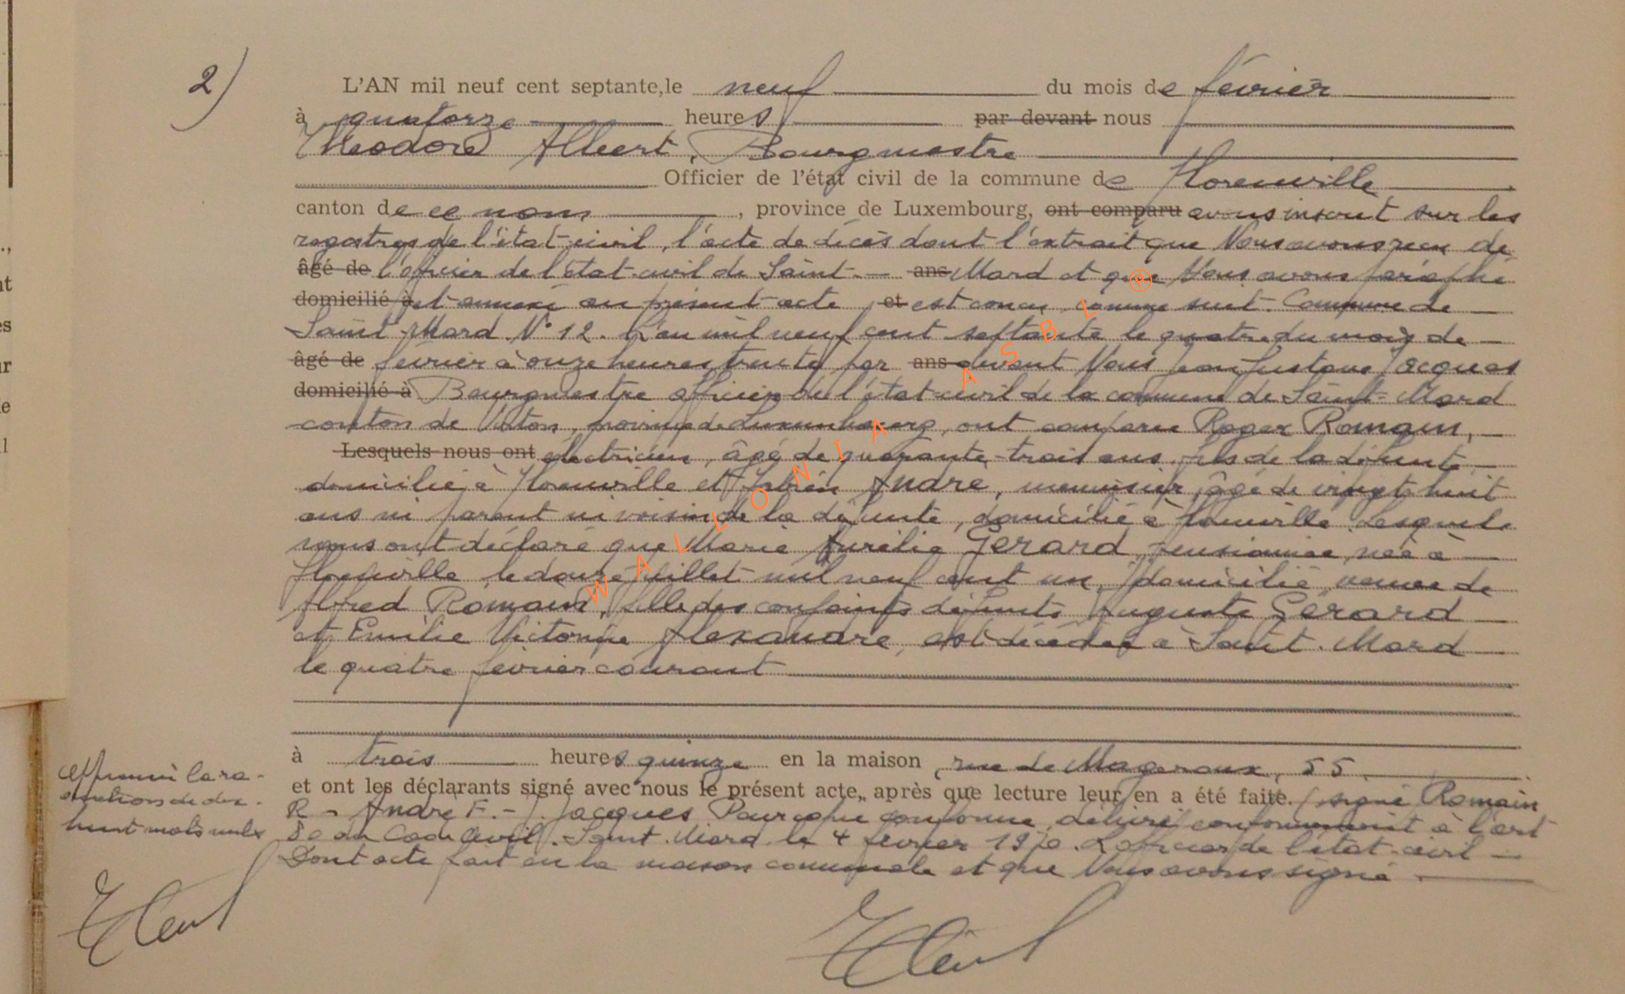 2)
L'AN mil neuf cent septante, le neuf du mois de février
à quatorze heures par devant nous
Théodore Albert, Bourgmestre
Officier de l'état civil de la commune de Florenville
canton de ce nom, province de Luxembourg, ont comparu avons inscrit sur les
registres de l'état-civil, l'acte de décès dont l'extrait que Nous avons reçu de
âgé de l'officier de l'état-civil de Saint- ans Mard et que Nous avons paraphé
domicilié à et annexé au présent acte, et est conçu comme suit. Commune de
Saint-Mard N° 12. L'an mil neuf cent septante le quatre du mois de
âgé de février à onze heures trente par ans devant Nous Jacques
domicilié à Bourgmestre officier de l'état-civil de la commune de Saint-Mard
canton de Virton, province de Luxembourg, ont comparu Roger Romain,
Lesquels nous ont électricien, âgé de quarante-trois ans, fils de la défunte
domicilié à Florenville et Fabien André, menuisier, âgé de vingt-huit
ans ni parent ni voisin de la défunte, domicilié à Florenville. Lesquels
nous ont déclaré que Marie Aurélie Gérard, pensionnée, née à
Florenville le douze juillet mil neuf cent un, y domiciliée, veuve de
Alfred Romain, fille des conjoints défunts Auguste Gérard
et Emilie Victorine Alexandre, est décédée à Saint-Mard
le quatre février courant
à trois heures quinze en la maison, rue de Mageroux, 55
et ont les déclarants signé avec nous le présent acte, après que lecture leur en a été faite. (signé Romain
R - André F. - J. Jacques Pour copie conforme, délivré conformément à l'art
80 du Code Civil. Saint-Mard le 4 février 1970. L'officier de l'état-civil
Dont acte fait en la maison communale et que Nous avons signé.
de dix-
huit mots nuls
WALLONIA ASBL ®